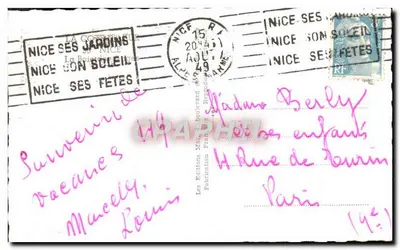 NICE SES JARDINS
NICE SON SOLEIL
NICE SES FETES
NICE R.P.
15
20H45
AOUT
49
NICE SES JARDINS
NICE SON SOLEIL
NICE SES FETES
RF
Souvenir de
vacances 49
Marcely,
Louis
Les Editions
Fabrication
Madame Berly
et ses enfants
4 Rue de Turin
Paris
(9e)
CPAPHIL